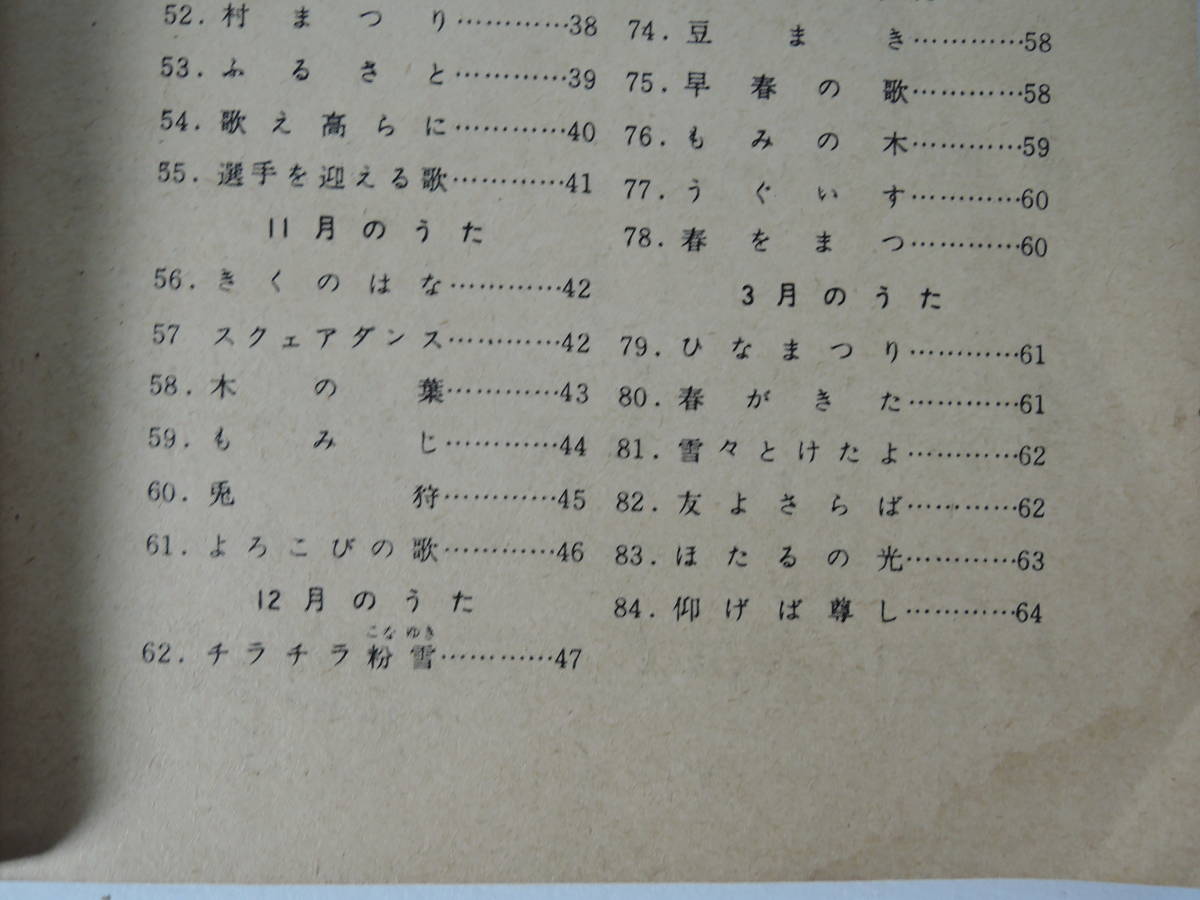 52. 村まつり…………38
53. ふるさと…………39
54. 歌え高らに…………40
55. 選手を迎える歌…………41
11月のうた
56. きくのはな…………42
57 スクェアダンス…………42
58. 木の葉…………43
59. もみじ…………44
60. 兎狩…………45
61. よろこびの歌…………46
12月のうた
こな ゆき
62. チラチラ粉雪…………47
74. 豆まき…………58
75. 早春の歌…………58
76. もみの木…………59
77. うぐいす…………60
78. 春をまつ…………60
3月のうた
79. ひなまつり…………61
80. 春がきた…………61
81. 雪々とけたよ…………62
82. 友よさらば…………62
83. ほたるの光…………63
84. 仰げば尊し…………64